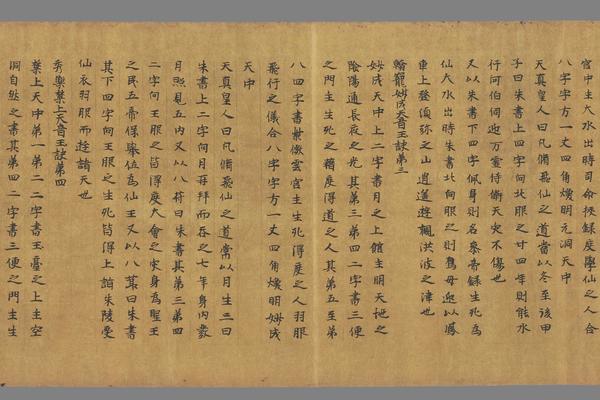 宫中主大水出時司命挍錄度學仙之人合
八字字方一丈四角煥明元洞天中
天真皇人曰凡脩飛仙之道當以冬至後甲
子日朱書上四字向北服之廿四年則能水
行河伯伺迎万靈侍衛天灾不傷也
又以朱書下四字佩身則名參青錄生死爲
仙大水出時朱書北向服之則鷩母迎以鳳
車上登須弥之山逍遥遊楓洪波之津也
翰寵妙成天音玉訣弟三
妙成天中上二字書月之上館主明天地之
陰陽通長夜之光其第三第四二字書三便
之門主生死之藉度得道之人其弟五至弟
八四字書紫微雲宮主生死得度之人羽服
飛行之儀合八字字方一丈四角煥明妙成
天中
天真皇人曰凡脩飛仙之道常以月生三日
朱書上二字向月再拜而吞之七年身內數
月照見五內又以八苻日朱書其弟三弟四
二字向王服之皆得度大會之灾身爲聖王
之民五帝保舉位爲仙王又以八節日朱書
其下四字向王服之生死皆得上詣朱陵受
仙衣羽服而遊諸天也
秀樂禁上天音玉訣弟四
禁上天中弟一弟二二字書玉臺之上主空
洞自然之書其弟四二字書三便之門主生